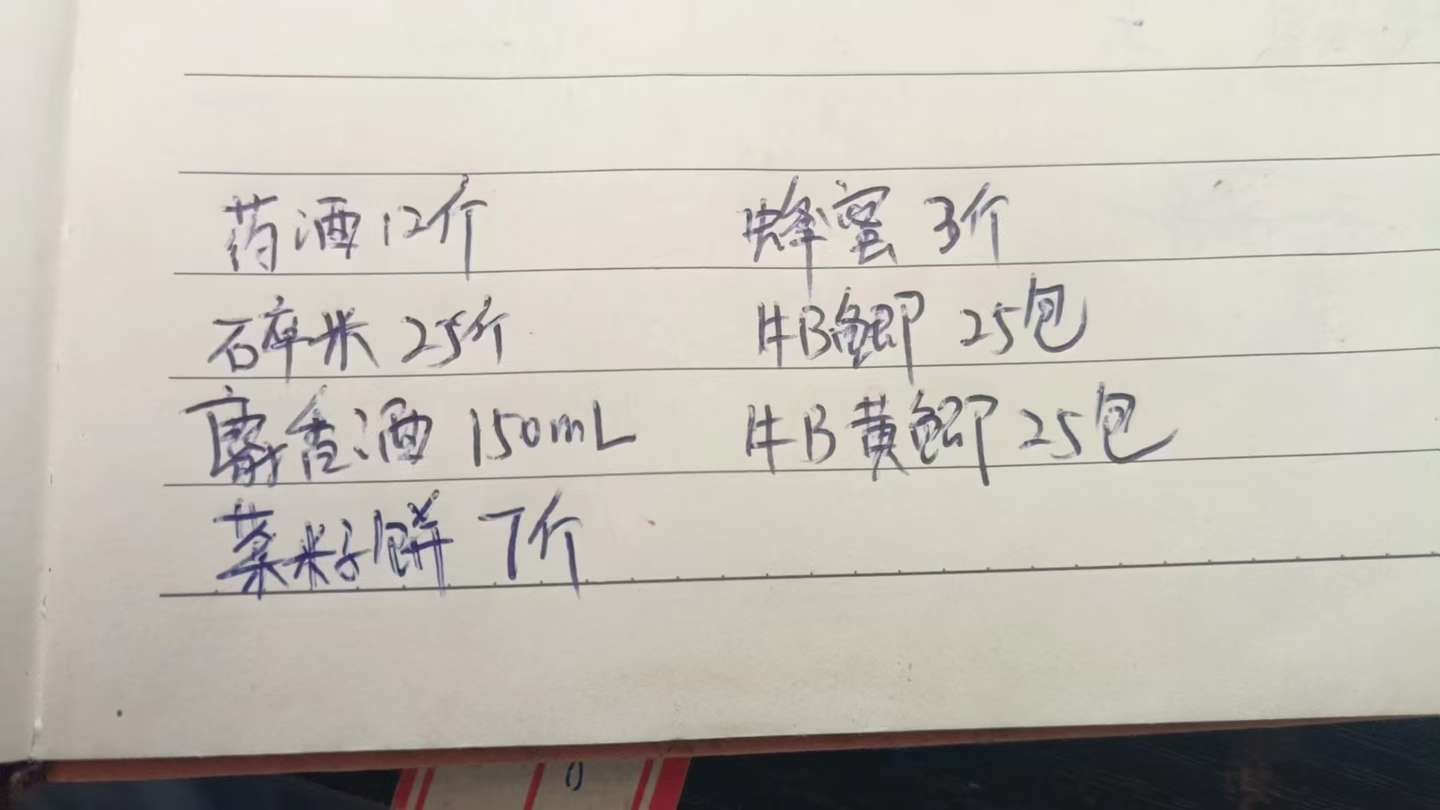 药酒12斤 蜂蜜 3斤
碎米 25斤 牛B鲫 25包
麝香酒 150mL 牛B黄鲫 25包
菜籽饼 7斤
0